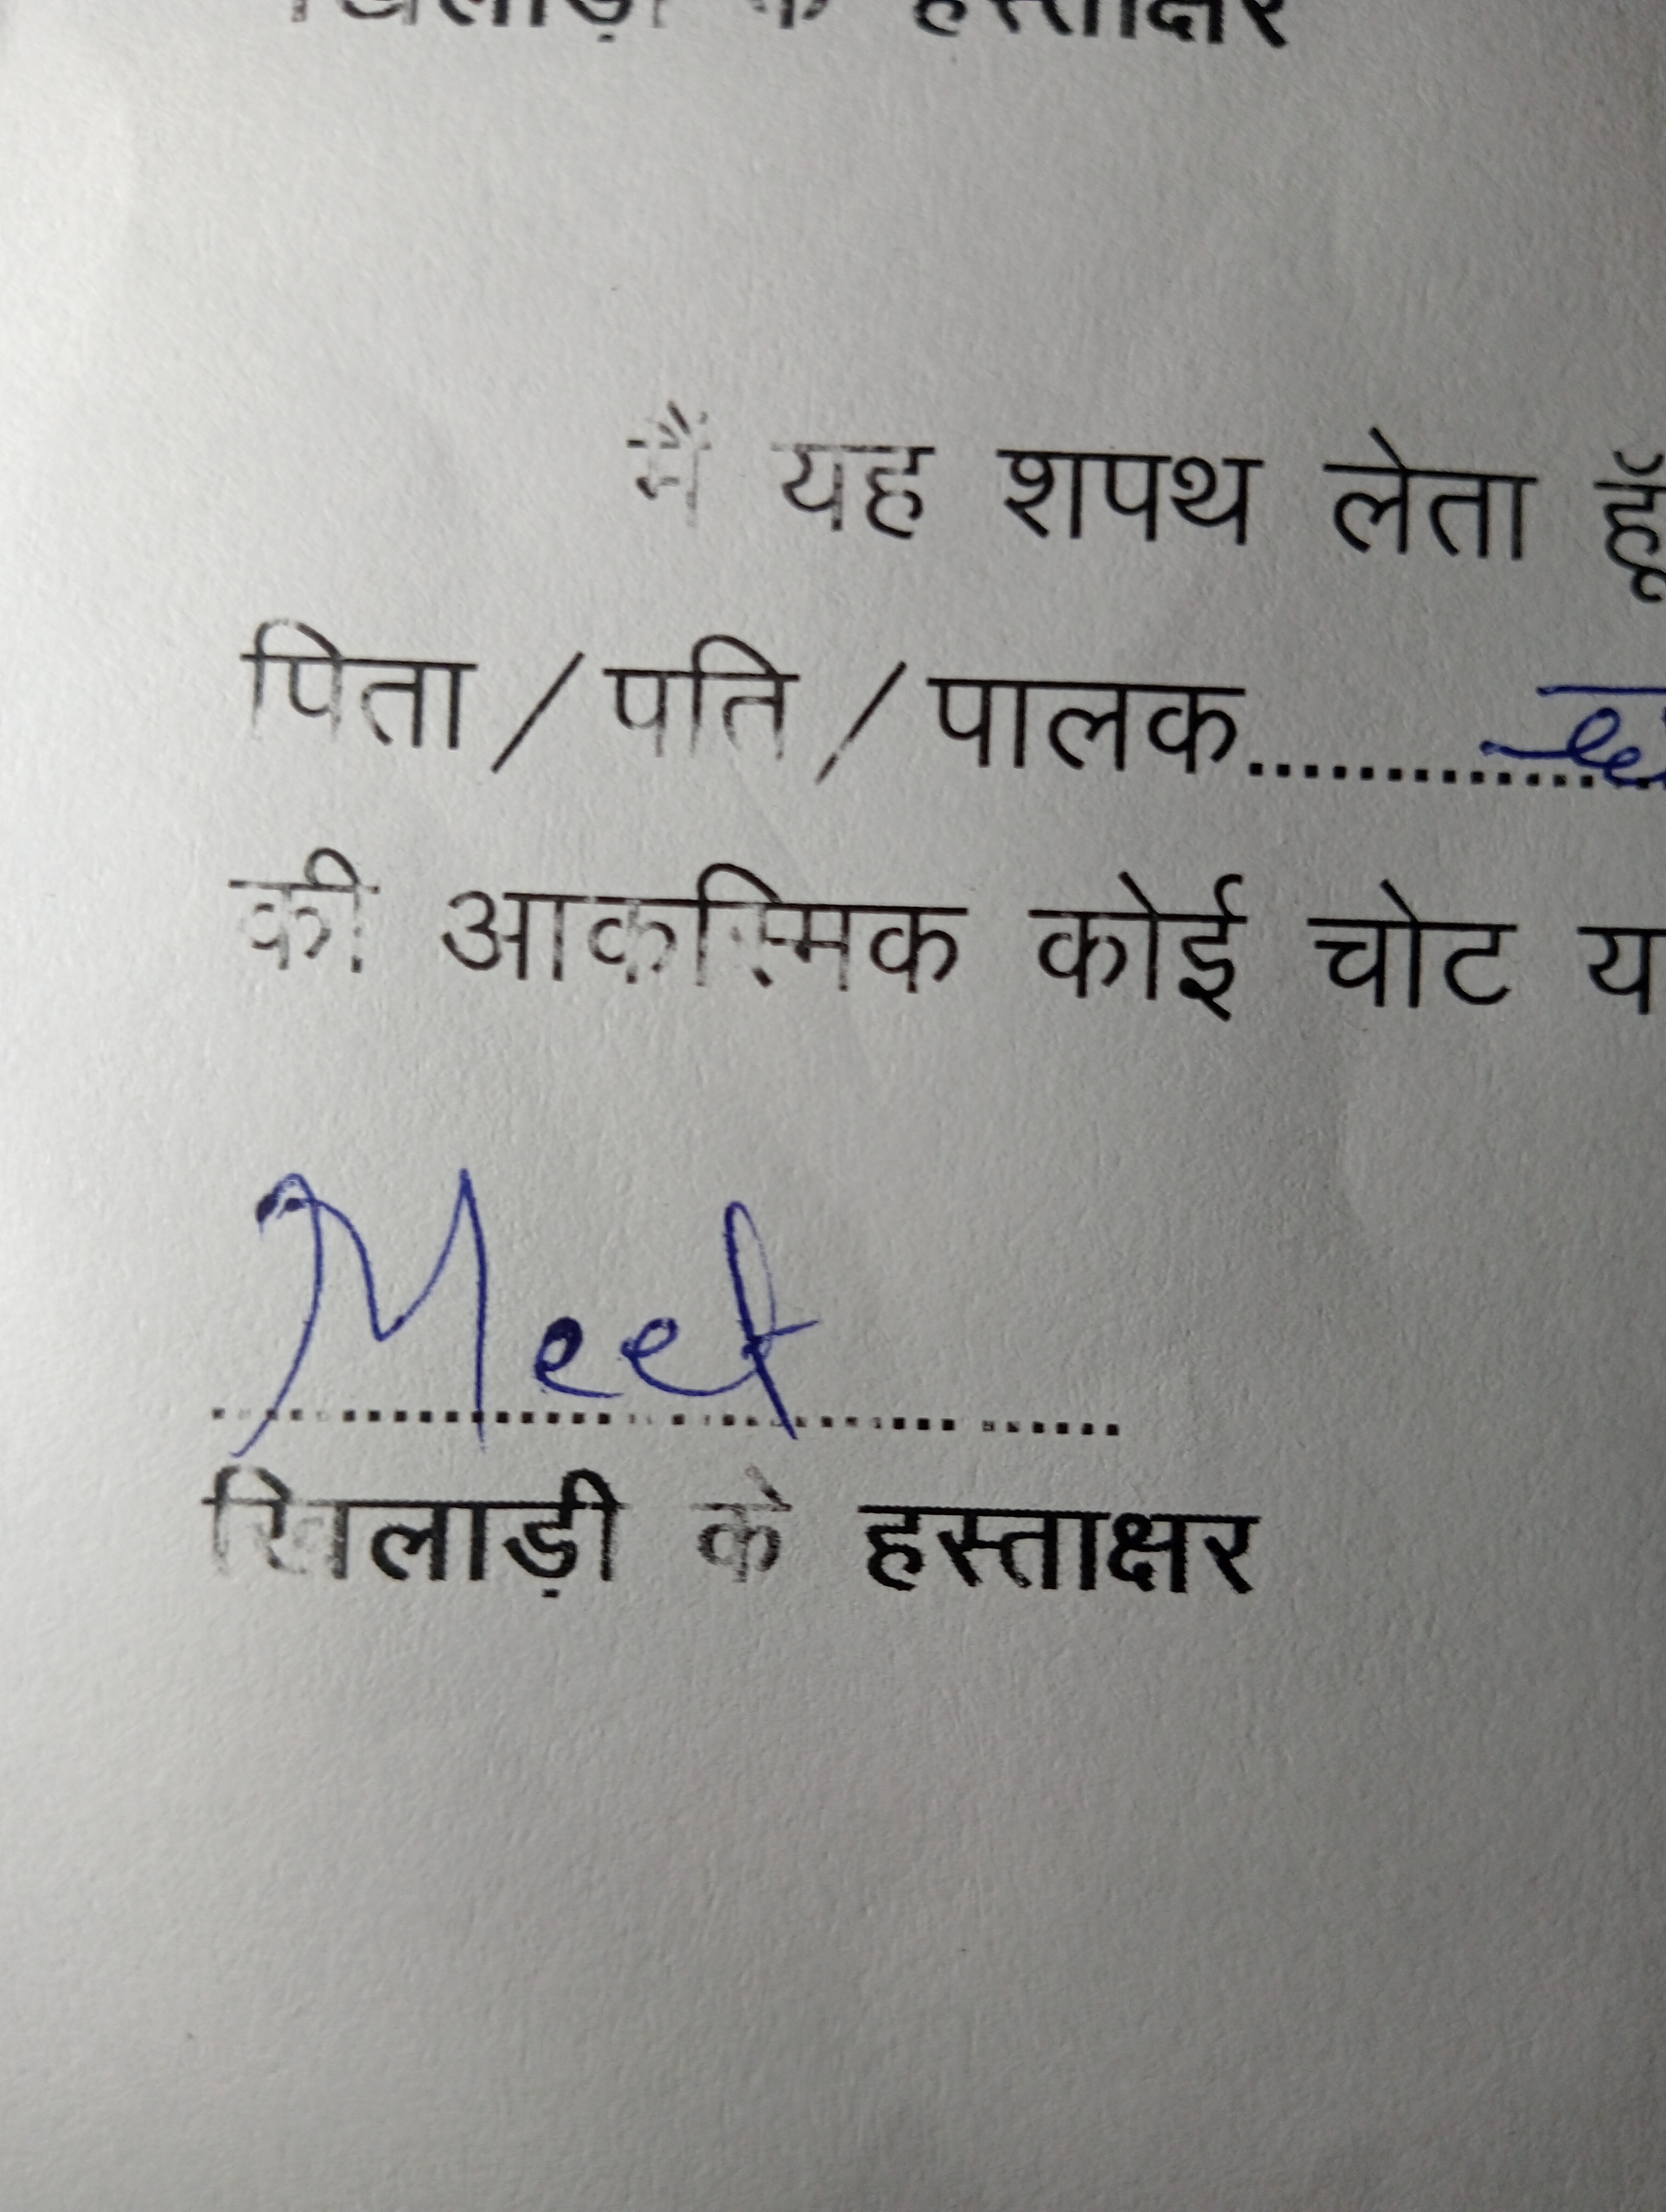 खिलाड़ी के हस्ताक्षर
मैं यह शपथ लेता हूँ
पिता/पति/पालक..............
की आकस्मिक कोई चोट य
Meet
..................................
खिलाड़ी के हस्ताक्षर